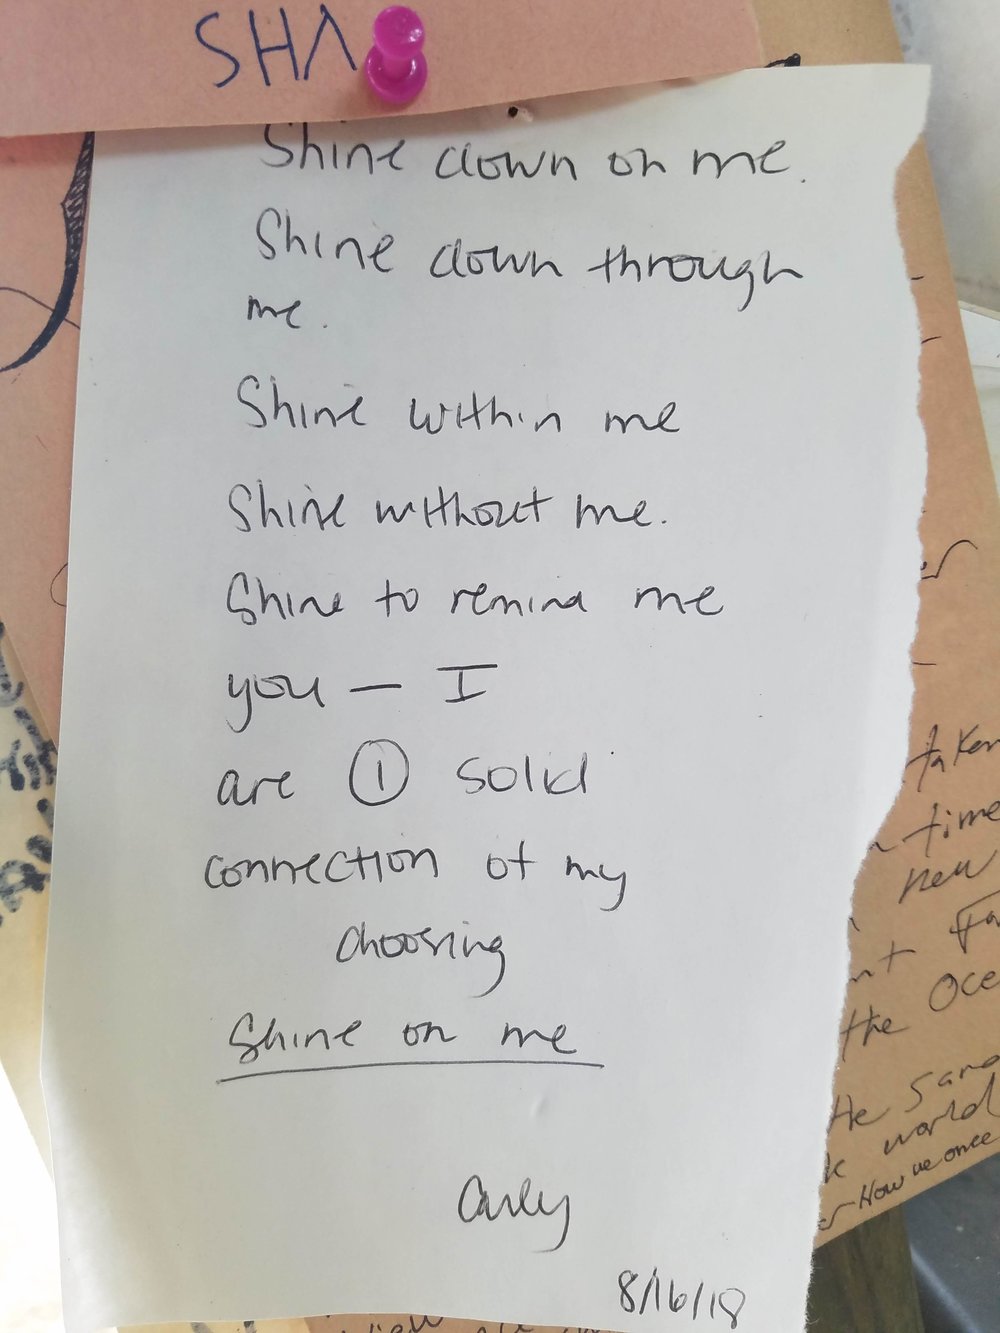 SHA
Shine down on me.
Shine down through
me.
Shine within me
Shine without me.
Shine to remind me
you — I
are ① solid
connection of my
choosing
Shine on me
Carly
8/16/18
taken
time
new
the Oce
the Sand
world
How we once